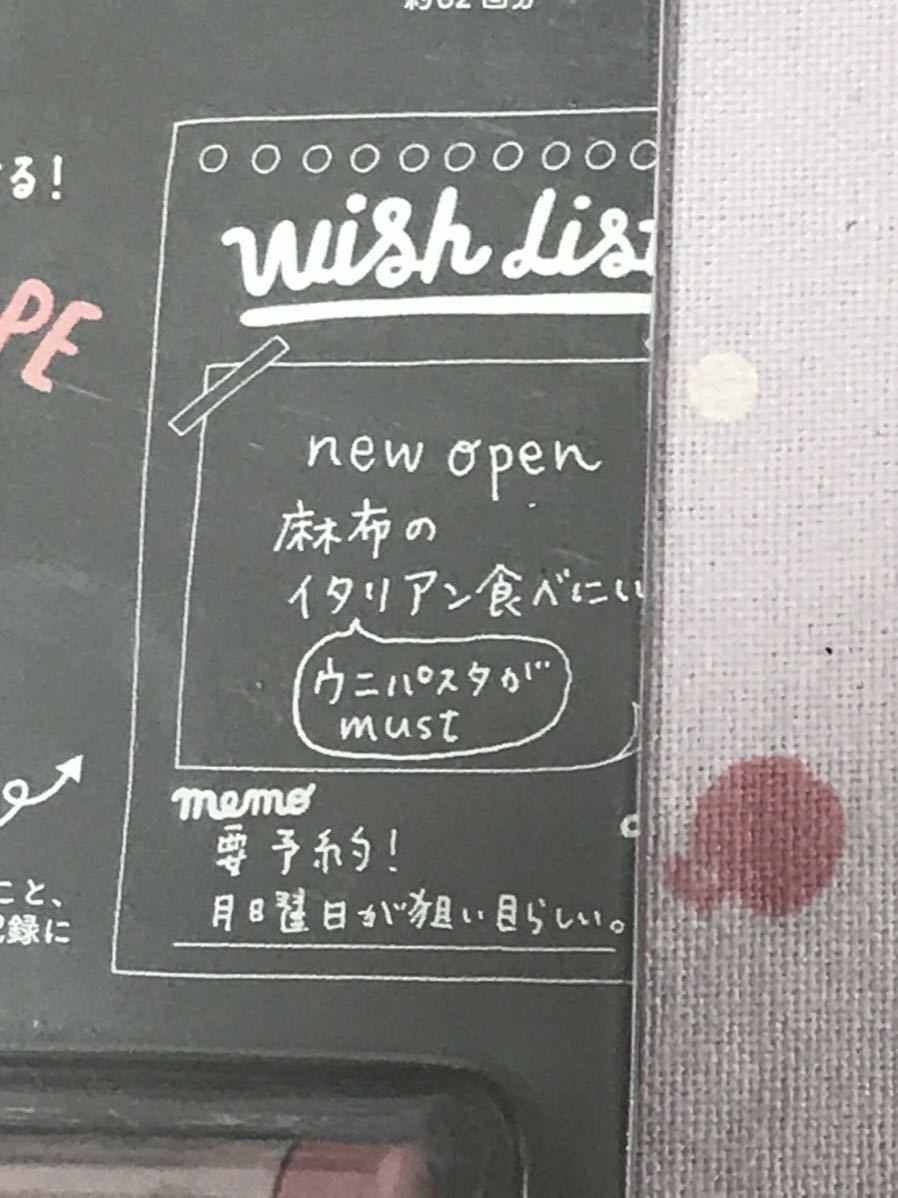 約62回分
る!
PE
wish list
new open
麻布の
イタリアン食べにい
ウニパスタが
must
memo
要予約!
月曜日が狙い目らしい。
こと、
記録に